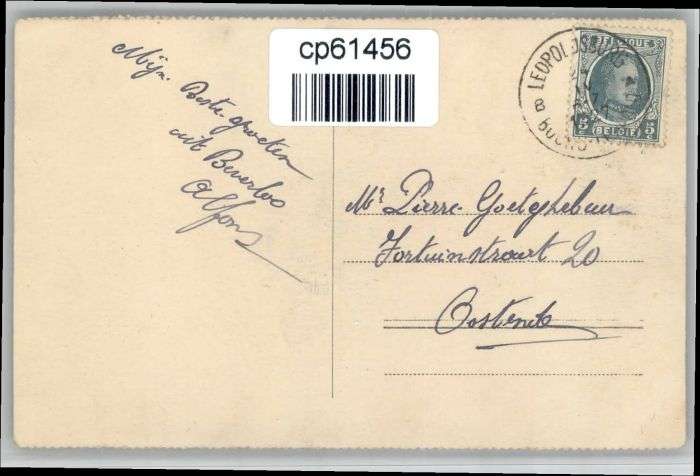 cp61456
Mijn Beste groeten
uit Beverloo
Alfons
LEOPOLDSBURG
BELGIQUE
5 (BELGIË) 5
Mr Pierre Goetghebeur
Fortuinstraat 20
Oostende